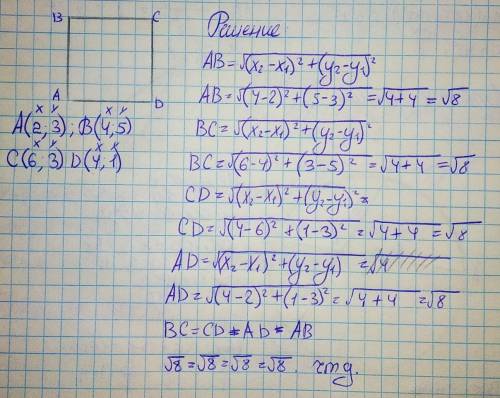 B C
A D
x y x y
A(2;3); B(4,5)
x y x y
C(6;3) D(4,1)
Решение:
AB=√(x₂-x₁)²+(y₂-y₁)²
AB=√(4-2)²+(5-3)²=√4+4=√8
BC=√(x₂-x₁)²+(y₂-y₁)²
BC=√(6-4)²+(3-5)²=√4+4=√8
CD=√(x₂-x₁)²+(y₂-y₁)²=
CD=√(4-6)²+(1-3)²=√4+4=√8
AD=√(x₂-x₁)²+(y₂-y₁)=√4
AD=√(4-2)²+(1-3)²=√4+4=√8
BC=CD=AD=AB
√8=√8=√8=√8. чтд.